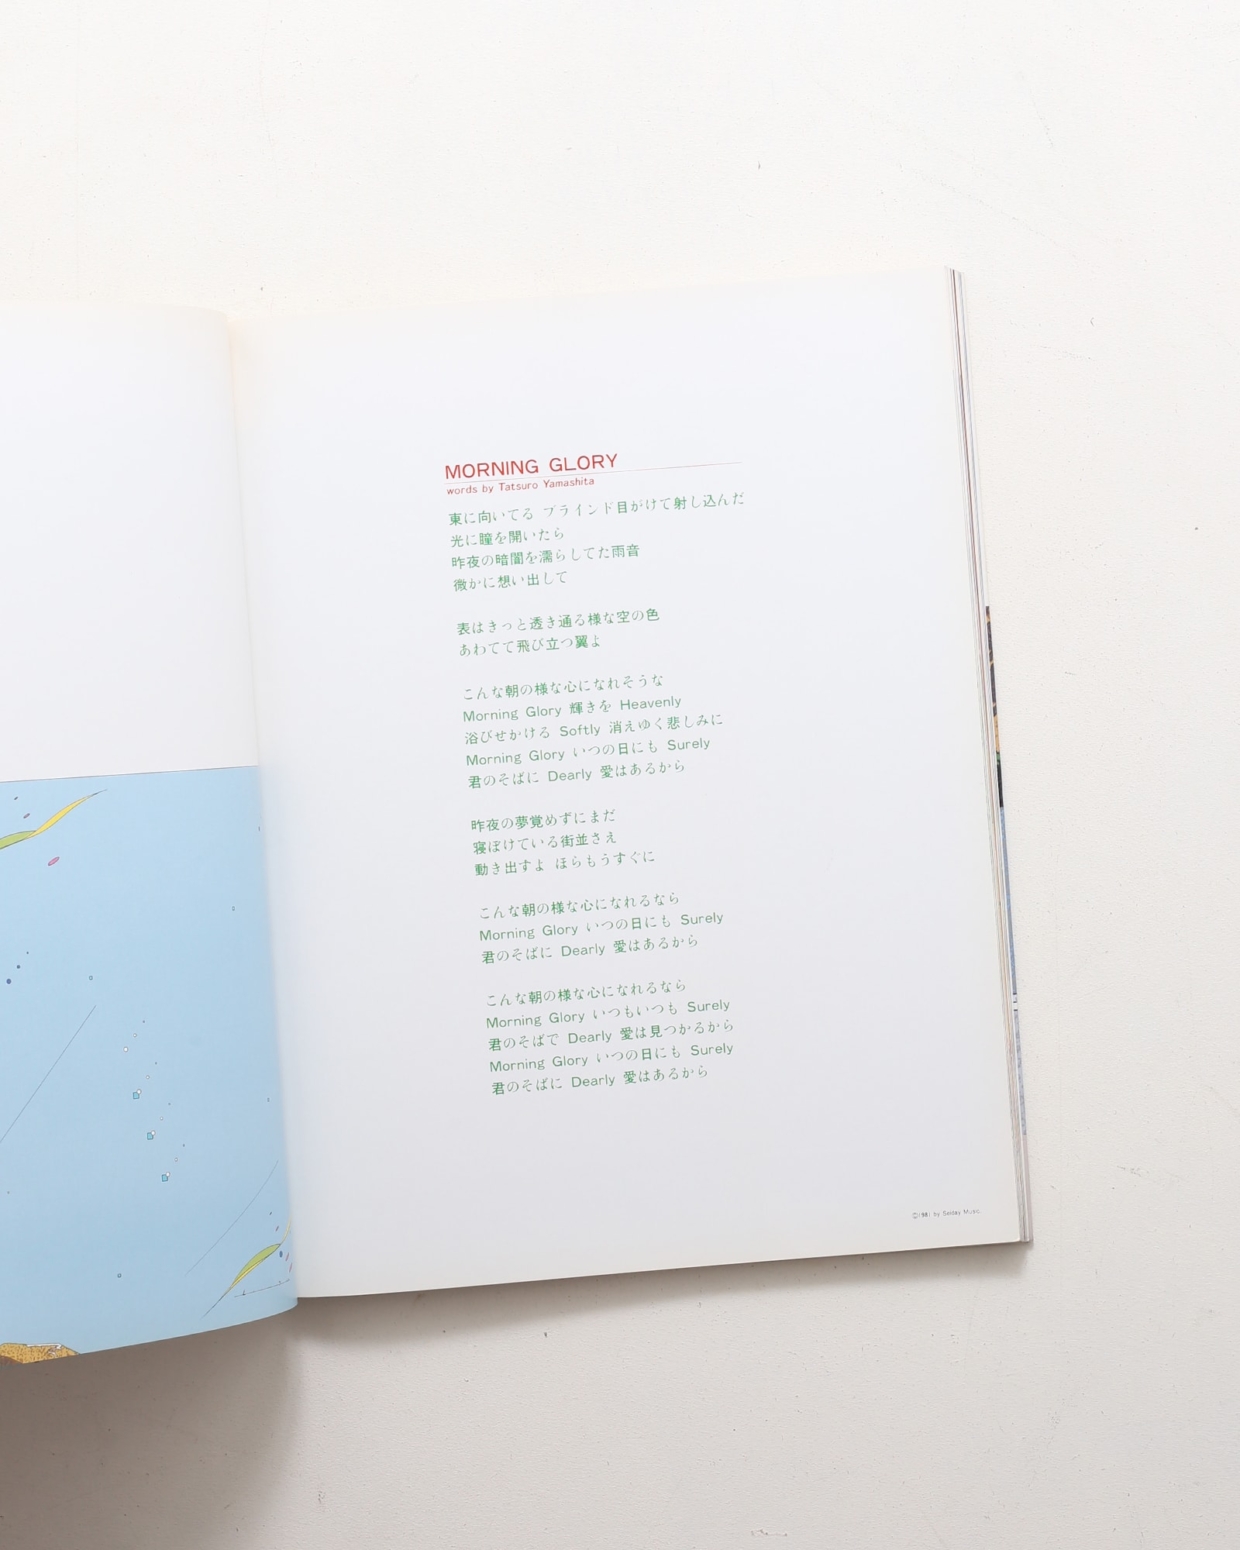 MORNING GLORY
words by Tatsuro Yamashita
東に向いてる ブラインド目がけて射し込んだ
光に瞳を開いたら
昨夜の暗闇を濡らしてた雨音
微かに想い出して
表はきっと透き通る様な空の色
あわてて飛び立つ翼よ
こんな朝の様な心になれそうな
Morning Glory 輝きを Heavenly
浴びせかける Softly 消えゆく悲しみに
Morning Glory いつの日にも Surely
君のそばに Dearly 愛はあるから
昨夜の夢覚めずにまだ
寝ぼけている街並さえ
動き出すよ ほらもうすぐに
こんな朝の様な心になれるなら
Morning Glory いつの日にも Surely
君のそばに Dearly 愛はあるから
こんな朝の様な心になれるなら
Morning Glory いつもいつも Surely
君のそばで Dearly 愛は見つかるから
Morning Glory いつの日にも Surely
君のそばに Dearly 愛はあるから
by Music